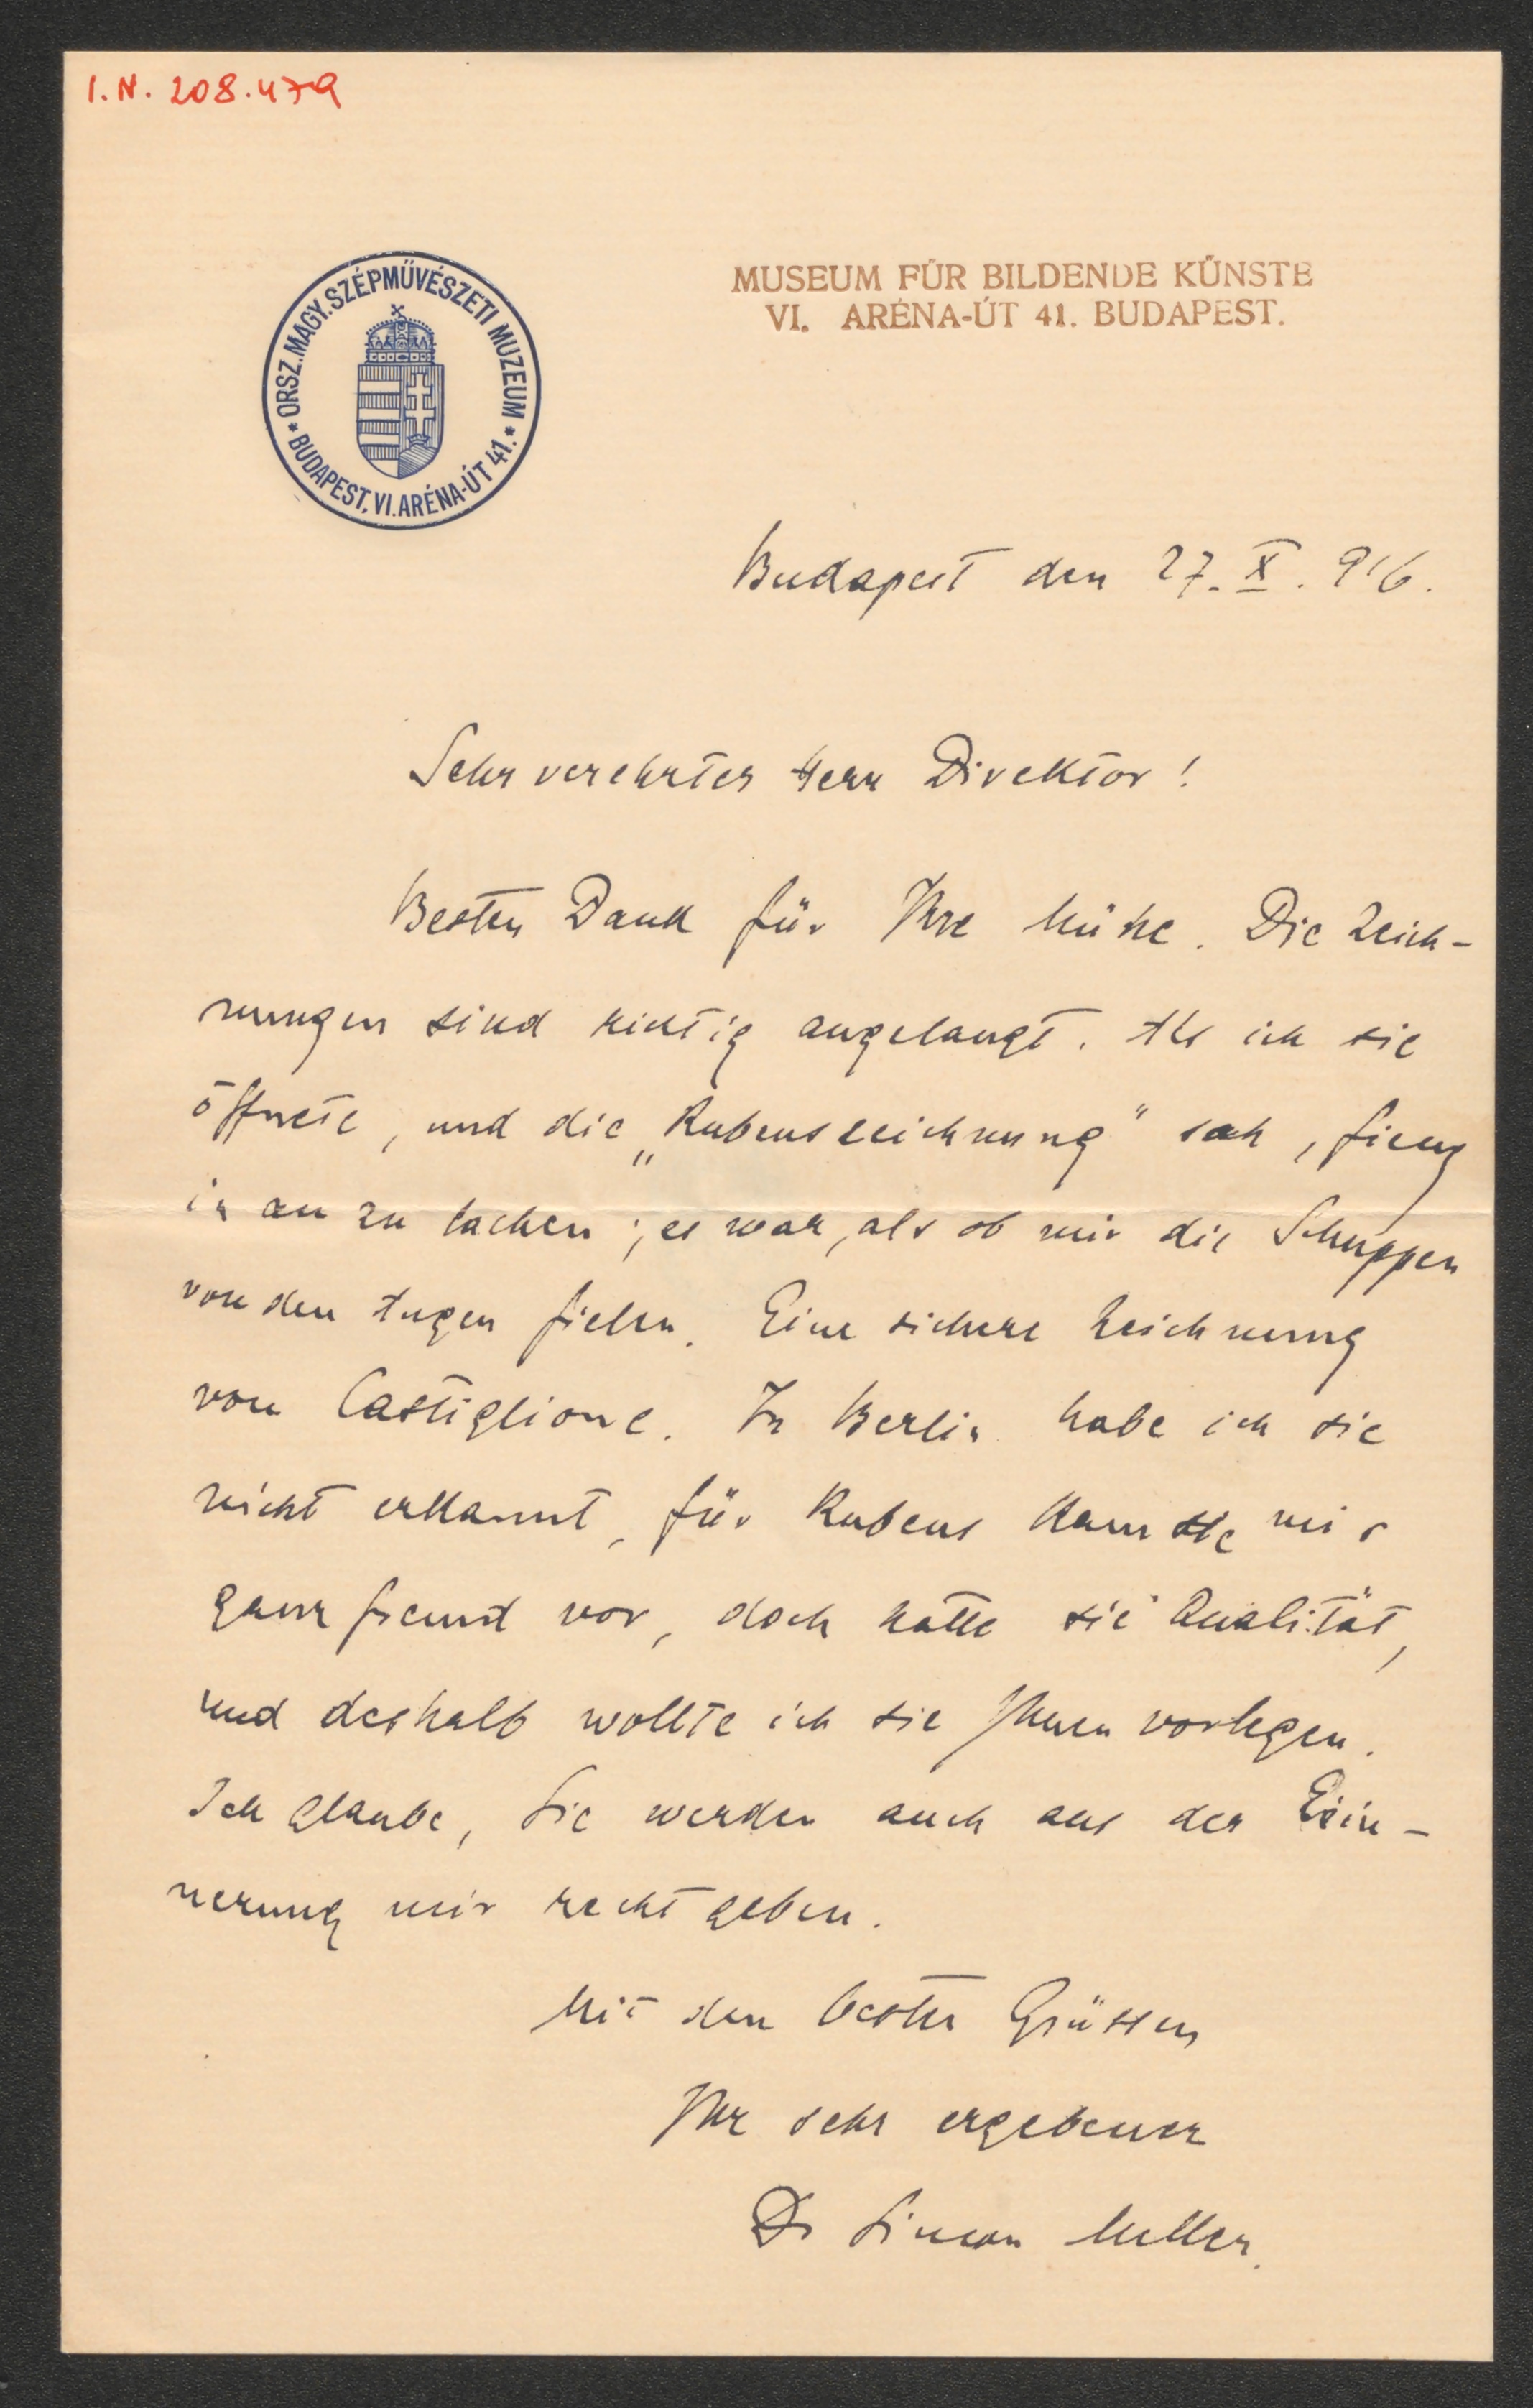 I.N. 208.479
ORSZ. MAGY. SZÉPMŰVÉSZETI MUZEUM
* BUDAPEST, VI. ARÉNA-ÚT 41. *
MUSEUM FÜR BILDENDE KÜNSTE
VI. ARÉNA-ÚT 41. BUDAPEST.
Budapest den 27. X. 916.
Sehr verehrter Herr Direktor!
Besten Dank für Ihre Mühe. Die Zeich-
nungen sind richtig angelangt. Als ich sie
öffnete, und die „Rubenszeichnung" sah, fieng
ich an zu lachen; es war, als ob mir die Schuppen
von den Augen fielen. Eine sichere Zeichnung
von Castiglione. In Berlin habe ich sie
nicht erkannt, für Rubens kam sie mir
ganz fremd vor, doch hatte sie Qualität,
und deshalb wollte ich sie Ihnen vorlegen.
Ich glaube, Sie werden auch aus der Erin-
nerung mir recht geben.
Mit den besten Grüssen
Ihr sehr ergebener
Dr Simon Meller.